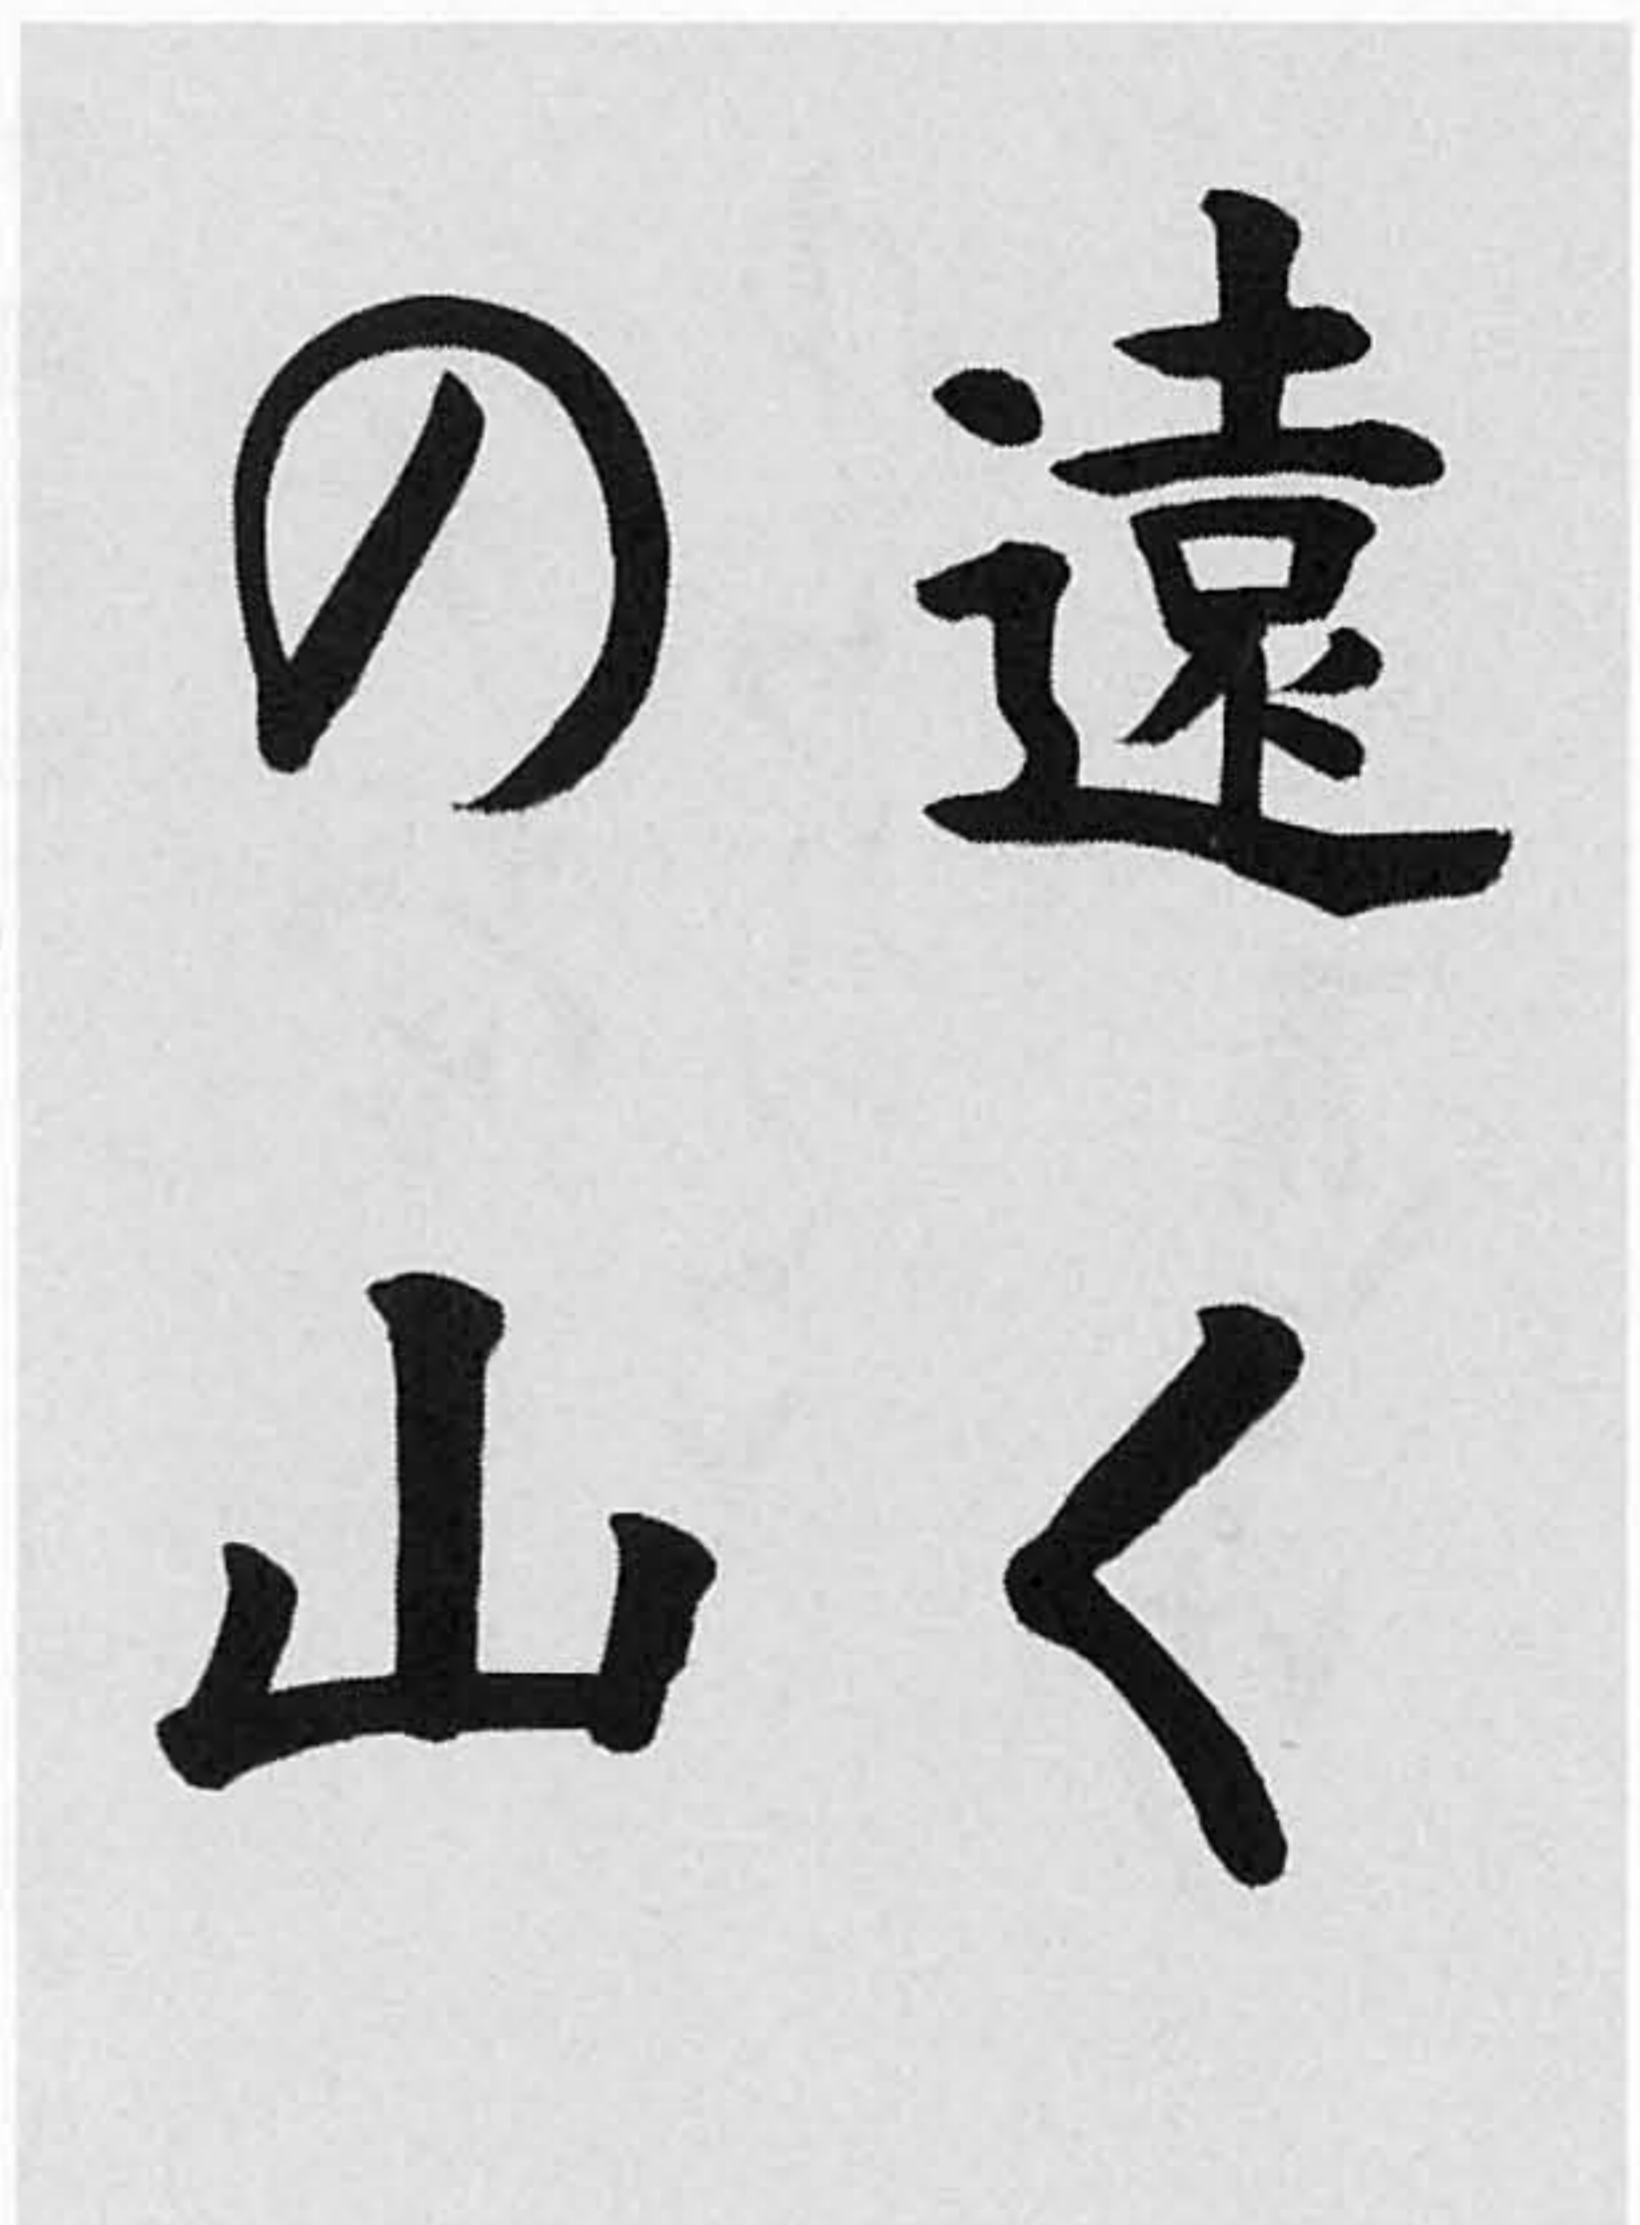 遠く
の山